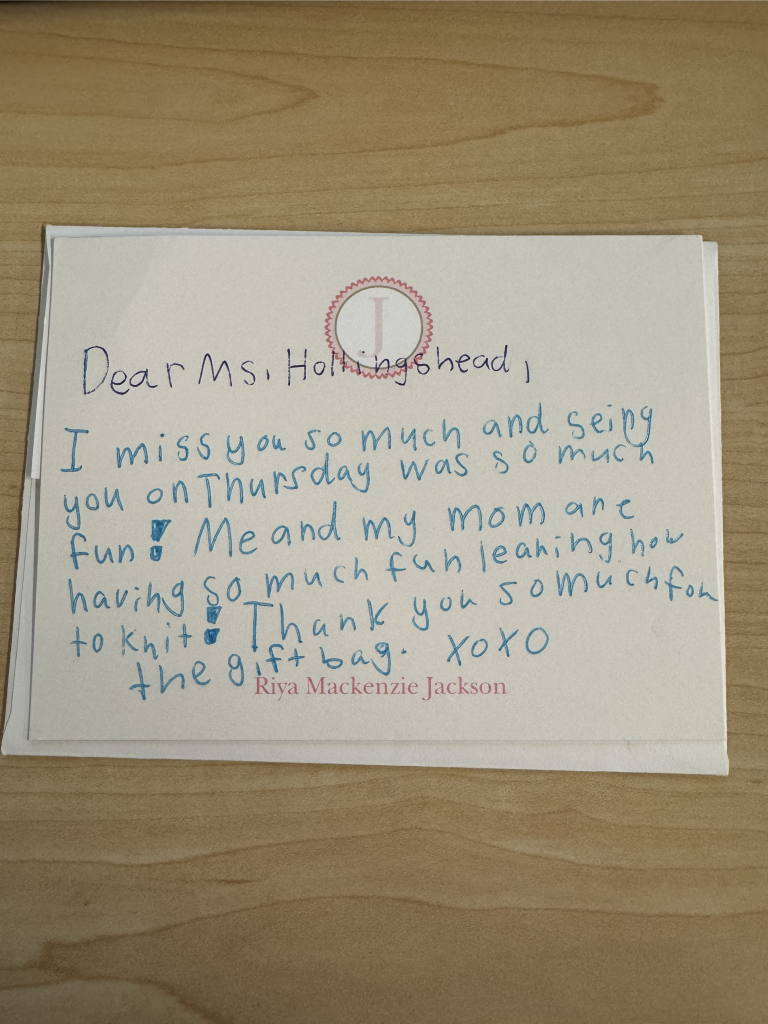 J
Dear Ms. Hollingshead,
I miss you so much and seing
you on Thursday was so much
fun! Me and my mom are
having so much fun leaning how
to knit! Thank you so much for
the gift bag. XOXO
Riya Mackenzie Jackson